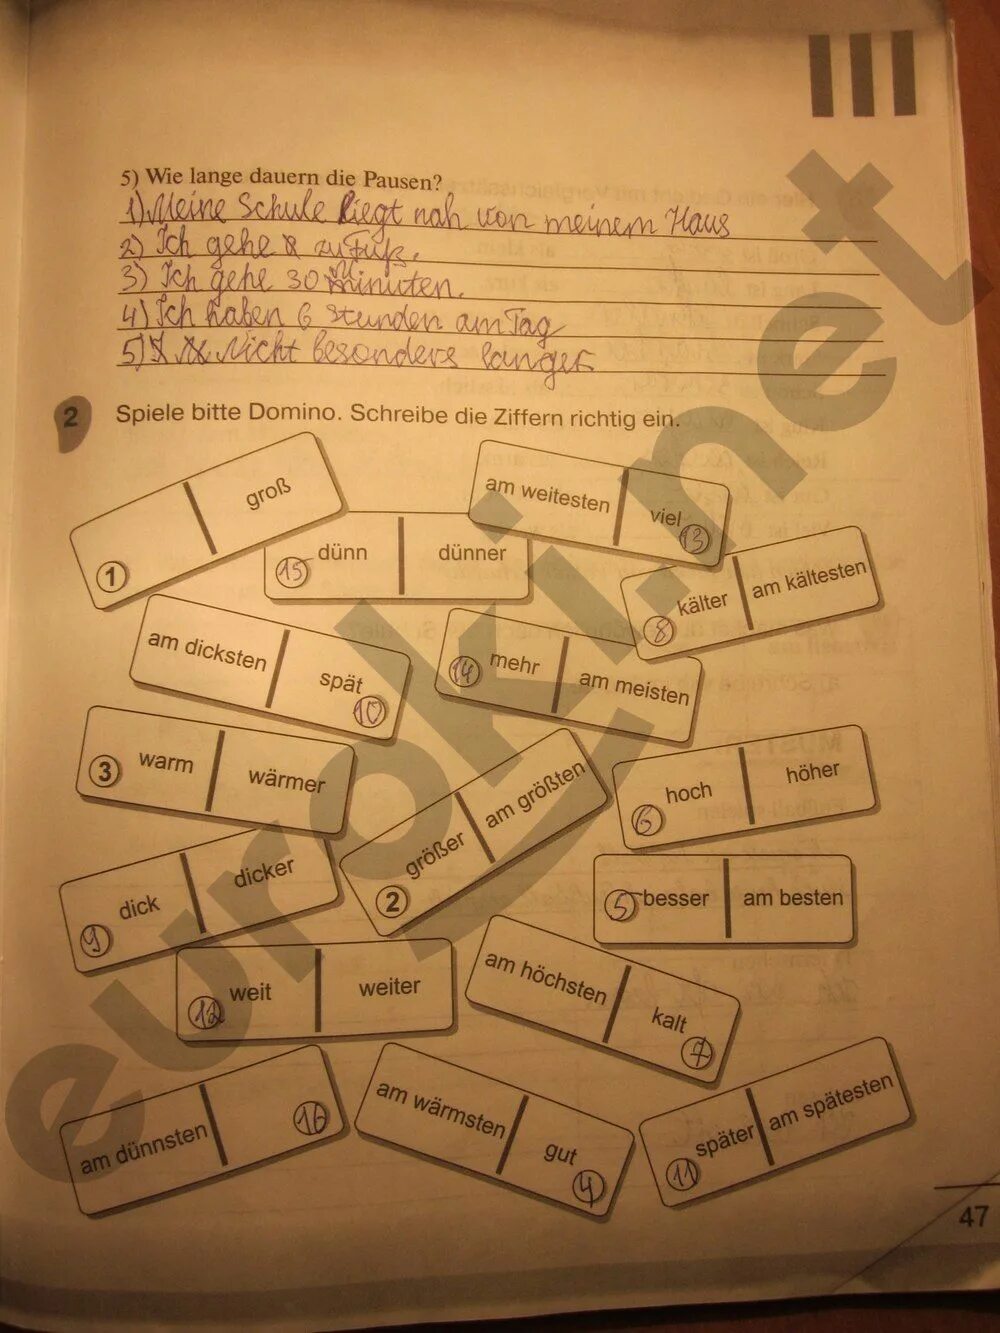 III
5) Wie lange dauern die Pausen?
1) Meine Schule liegt nah von meinem Haus
2) Ich gehe zu Fuß.
3) Ich gehe 30 minuten.
4) Ich haben 6 stunden am Tag
5) Nicht besonders langer
2 Spiele bitte Domino. Schreibe die Ziffern richtig ein.
1 groß
am weitesten viel 13
15 dünn dünner
8 kälter am kältesten
am dicksten spät 10
14 mehr am meisten
3 warm wärmer
2 größer am größten
6 hoch höher
9 dick dicker
5 besser am besten
12 weit weiter
am höchsten kalt 7
am dünnsten 16
am wärmsten gut 4
11 später am spätesten
47
euroki.net